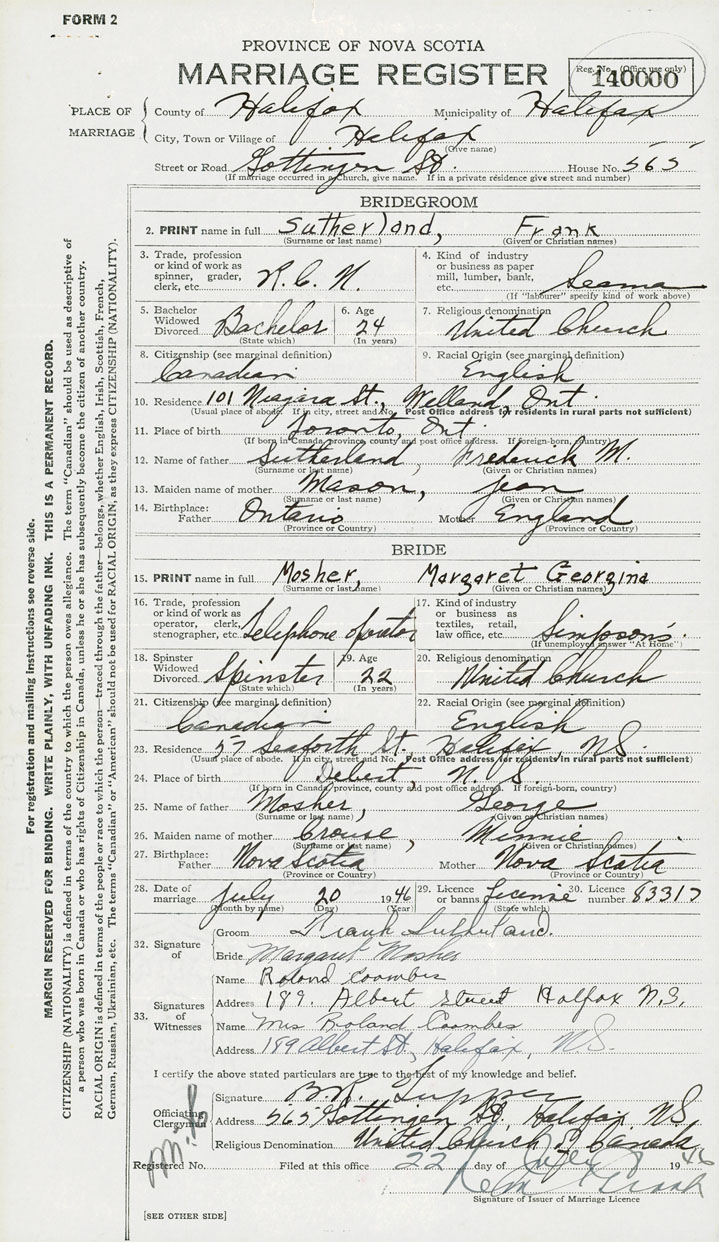 FORM 2
PROVINCE OF NOVA SCOTIA
MARRIAGE REGISTER
Reg. No. (Office use only)
140000
PLACE OF MARRIAGE
County of Halifax Municipality of Halifax
City, Town or Village of Halifax
(Give name)
Street or Road Gottingen St. House No. 565
(If marriage occurred in a church, give name. If in a private residence give street and number)
BRIDEGROOM
2. PRINT name in full Sutherland, Frank
(Surname or last name) (Given or Christian names)
3. Trade, profession or kind of work as spinner, grader, clerk, etc. R.C.N.
4. Kind of industry or business as paper mill, lumber, bank, etc. Seama
(If "labourer" specify kind of work above)
5. Bachelor Widowed Divorced Bachelor
(State which)
6. Age 24
(In years)
7. Religious denomination
United Church
8. Citizenship (see marginal definition)
Canadian
9. Racial Origin (see marginal definition)
English
10. Residence 101 Niagara St., Welland, Ont.
(Usual place of abode. If in city, street and No. Post Office address for residents in rural parts not sufficient)
11. Place of birth Toronto, Ont.
(If born in Canada, province, county and post office address. If foreign-born, country)
12. Name of father Sutherland, Frederick M.
(Surname or last name) (Given or Christian names)
13. Maiden name of mother Mason, Jean
(Surname or last name) (Given or Christian names)
14. Birthplace: Father Ontario Mother England
(Province or Country) (Province or Country)
BRIDE
15. PRINT name in full Mosher, Margaret Georgina
(Surname or last name) (Given or Christian names)
16. Trade, profession or kind of work as operator, clerk, stenographer, etc. Telephone operator
17. Kind of industry or business as textiles, retail, law office, etc. Simpson's
(If unemployed answer "At Home")
18. Spinster Widowed Divorced Spinster
(State which)
19. Age 22
(In years)
20. Religious denomination
United Church
21. Citizenship (see marginal definition)
Canadian
22. Racial Origin (see marginal definition)
English
23. Residence 57 Seaforth St., Halifax, N.S.
(Usual place of abode. If in city, street and No. Post Office address for residents in rural parts not sufficient)
24. Place of birth Debert N.S.
(If born in Canada, province, county and post office address. If foreign-born, country)
25. Name of father Mosher, George
(Surname or last name) (Given or Christian names)
26. Maiden name of mother Crouse, Minnie
(Surname or last name) (Given or Christian names)
27. Birthplace: Father Nova Scotia Mother Nova Scotia
(Province or Country) (Province or Country)
28. Date of marriage July 20 1946
(Month by name) (Day) (Year)
29. Licence or banns license
(State which)
30. Licence number 83317
32. Signature of
Groom Frank Sutherland.
Bride Margaret Mosher
33. Signatures of Witnesses
Name Roland Coombes
Address 189. Albert Street Halfax N.S.
Name Mrs Roland Coombes
Address 189 Albert St., Halifax, N.S.
I certify the above stated particulars are true to the best of my knowledge and belief.
Officiating Clergyman
Signature
Address 565 Gottingen St, Halifax. N.S.
Religious Denomination United Church of Canada
Registered No. Filed at this office 22 day of July 1946
Signature of Issuer of Marriage Licence
[SEE OTHER SIDE]
For registration and mailing instructions see reverse side.
MARGIN RESERVED FOR BINDING. WRITE PLAINLY, WITH UNFADING INK. THIS IS A PERMANENT RECORD.
CITIZENSHIP (NATIONALITY) is defined in terms of the country to which the person owes allegiance. The term "Canadian" should be used as descriptive of
a person who was born in Canada or who has rights of Citizenship in Canada, unless he or she has subsequently become the citizen of another country.
RACIAL ORIGIN is defined in terms of the people or race to which the person—traced through the father—belongs, whether English, Irish, Scottish, French,
German, Russian, Ukrainian, etc. The terms "Canadian" or "American" should not be used for RACIAL ORIGIN, as they express CITIZENSHIP (NATIONALITY).